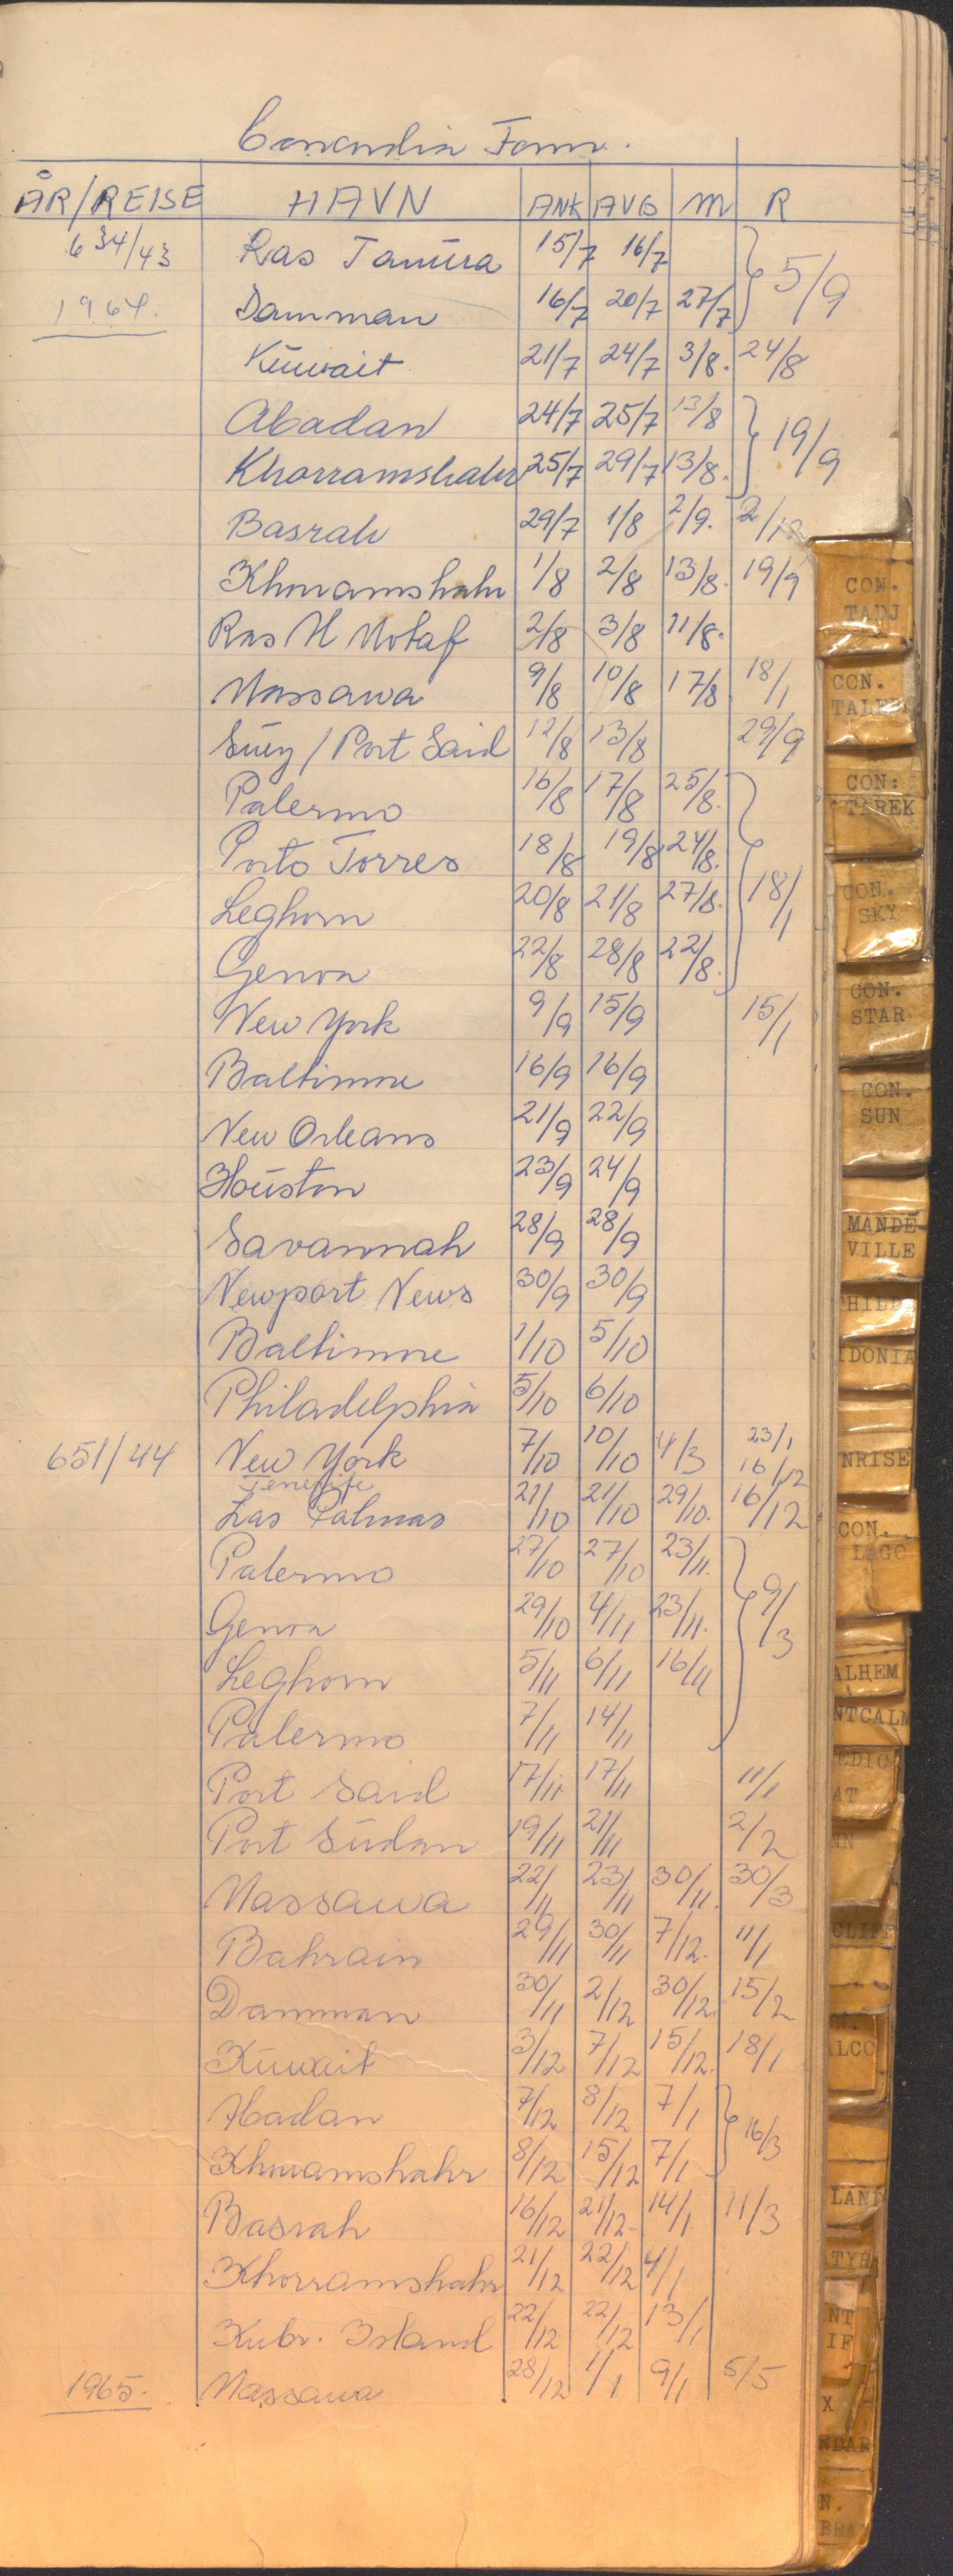 Concordia Fonn.
ÅR/REISE HAVN ANK AVG M R
634/43 Ras Tanura 15/7 16/7 5/9
1964. Damman 16/7 20/7 27/7
Kuwait 21/7 24/7 3/8. 24/8
Abadan 24/7 25/7 13/8 19/9
Khorramshahr 25/7 29/7 13/8.
Basrah 29/7 1/8 2/9. 2/12
Khorramshahr 1/8 2/8 13/8. 19/9
Ras Al Motaf 2/8 3/8 11/8.
Massawa 9/8 10/8 17/8 18/1
Suez / Port Said 12/8 13/8 29/9
Palermo 16/8 17/8 25/8.
Porto Torres 18/8 19/8 24/8.
Leghorn 20/8 21/8 27/8. 18/1
Genoa 22/8 28/8 22/8.
New York 9/9 15/9 15/1
Baltimore 16/9 16/9
New Orleans 21/9 22/9
Houston 23/9 24/9
Savannah 28/9 28/9
Newport News 30/9 30/9
Baltimore 1/10 5/10
Philadelphia 5/10 6/10
651/44 New York 7/10 10/10 4/3 23/1 16/12
Tenerife
Las Palmas 21/10 21/10 29/10. 16/12
Palermo 27/10 27/10 23/11.
Genoa 29/10 4/11 23/11. 9/3
Leghorn 5/11 6/11 16/11
Palermo 7/11 14/11
Port Said 17/11 17/11 11/1
Port Sudan 19/11 21/11 2/2
Massawa 22/11 23/11 30/11. 30/3
Bahrain 29/11 30/11 7/12. 11/1
Damman 30/11 2/12 30/12. 15/2
Kuwait 3/12 7/12 15/12. 18/1
Abadan 7/12 8/12 7/1 16/3
Khorramshahr 8/12 15/12 7/1
Basrah 16/12 21/12. 14/1. 11/3
Khorramshahr 21/12 22/12 4/1
Kubr. Island 22/12 22/12 13/1
1965. Massawa 28/12 1/1 9/1 5/5
CON.
TADJ
CON.
TALE
CON:
TAREK
CON.
SKY
CON.
STAR
CON.
SUN
MANDE-
VILLE
HILD
IDONIA
NRISE
CON.
LAGO
ALHEM
NTCALM
EDIC
AT
NN
CLIFF
N.
ALCO
LAND
TYR
NT
IF
X
NDAR
N.